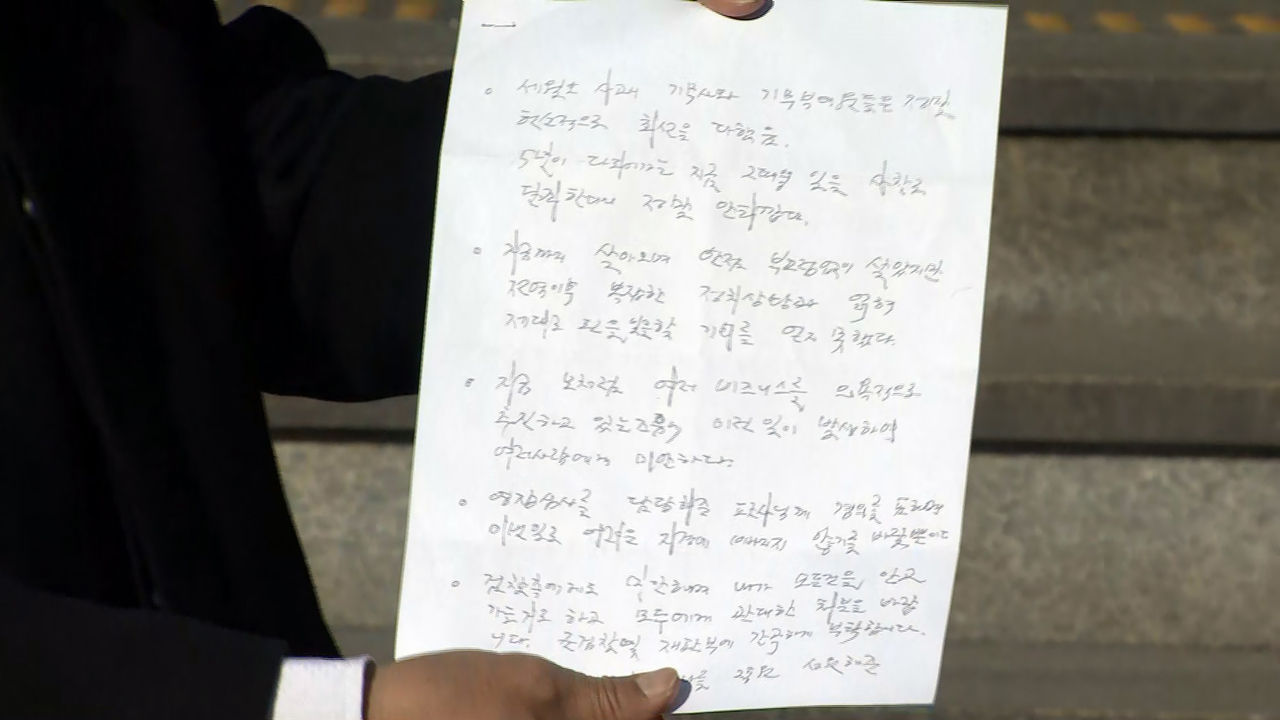 세월호 사고시 기무사와 기무부대원들은 정말
헌신적으로 최선을 다했음.
5년이 다되어가는 지금 그때의 일을 사찰로
단죄한다니 정말 안타깝다.
지금까지 살아오며 한점 부끄럼없이 살았지만
전역이후 복잡한 정치상황과 얽혀
제대로 된 일을 할 기회를 얻지 못했다.
지금 모처럼 여러 비즈니스를 의욕적으로
추진하고 있는데 이런 일이 발생하여
여러사람에게 미안하다.
영장심사를 담당해준 판사님께 경의를 표하며
이번일로 어려운 지경에 빠지지 않기를 바랄뿐이다
검찰측에게도 미안하며 내가 모든것을 안고
가는걸로 하고 모두에게 관대한 처분을 바랍
니다. 군검찰 및 재판부에 간곡하게 부탁합니다.
성원해준